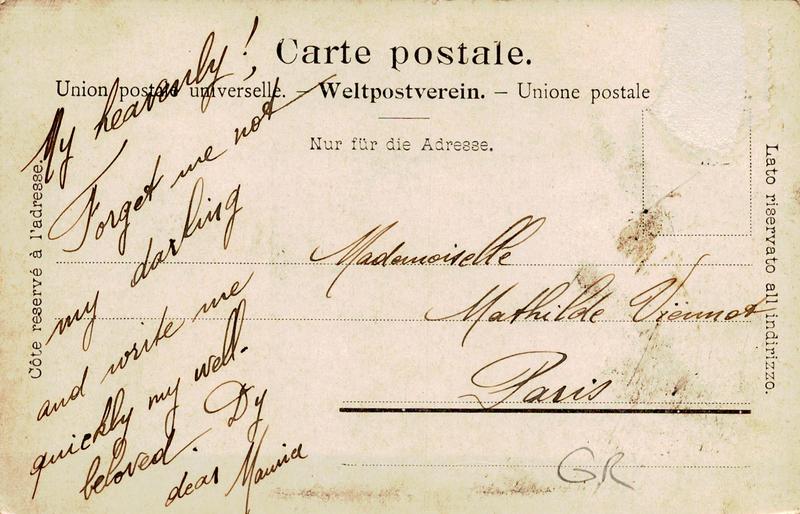 Carte postale.
Union postale universelle. – Weltpostverein. – Unione postale
Nur für die Adresse.
Côte reservé à l'adresse.
Lato riservato all indirizzo.
My heavenly!
Forget me not
my darling
and write me
quickly my well-
beloved Dy
dear Maurice
Mademoiselle
Mathilde Viennot
Paris
GR